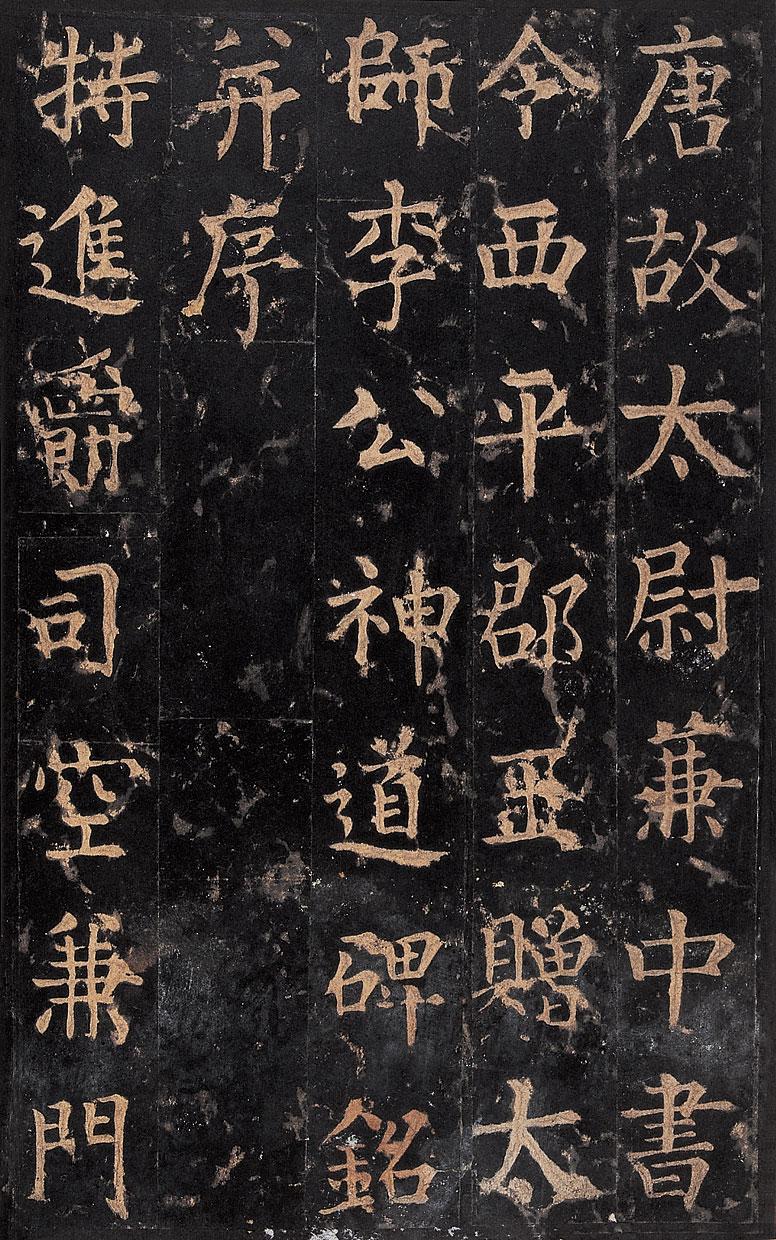 唐故太尉兼中書
令西平郡王贈太
師李公神道碑銘
并序
特進爵司空兼門